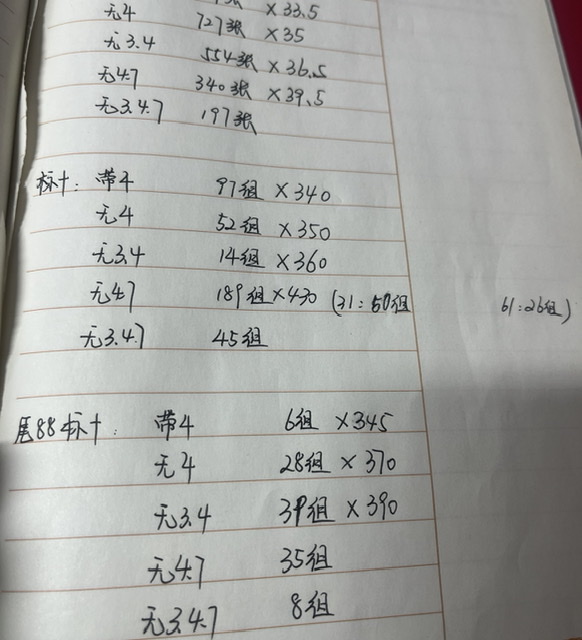 张 ×33.5
无4 727张 ×35
无3.4 554张 ×36.5
无4.7 340张 ×39.5
无3.4.7 197张
标十: 带4 97组 ×340
无4 52组 ×350
无3.4 14组 ×360
无4.7 189组 ×430 (31:50组 61:26组)
无3.4.7 45组
尾88标十: 带4 6组 ×345
无4 28组 ×370
无3.4 39组 ×390
无4.7 35组
无3.4.7 8组